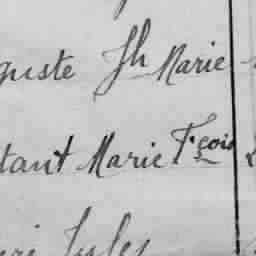 guste Jh Marie
tant Marie Fçois
ri Jules